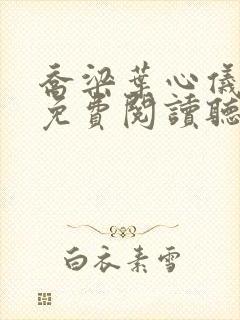 喬梁葉心儀
免費閱讀聽
白衣素雪